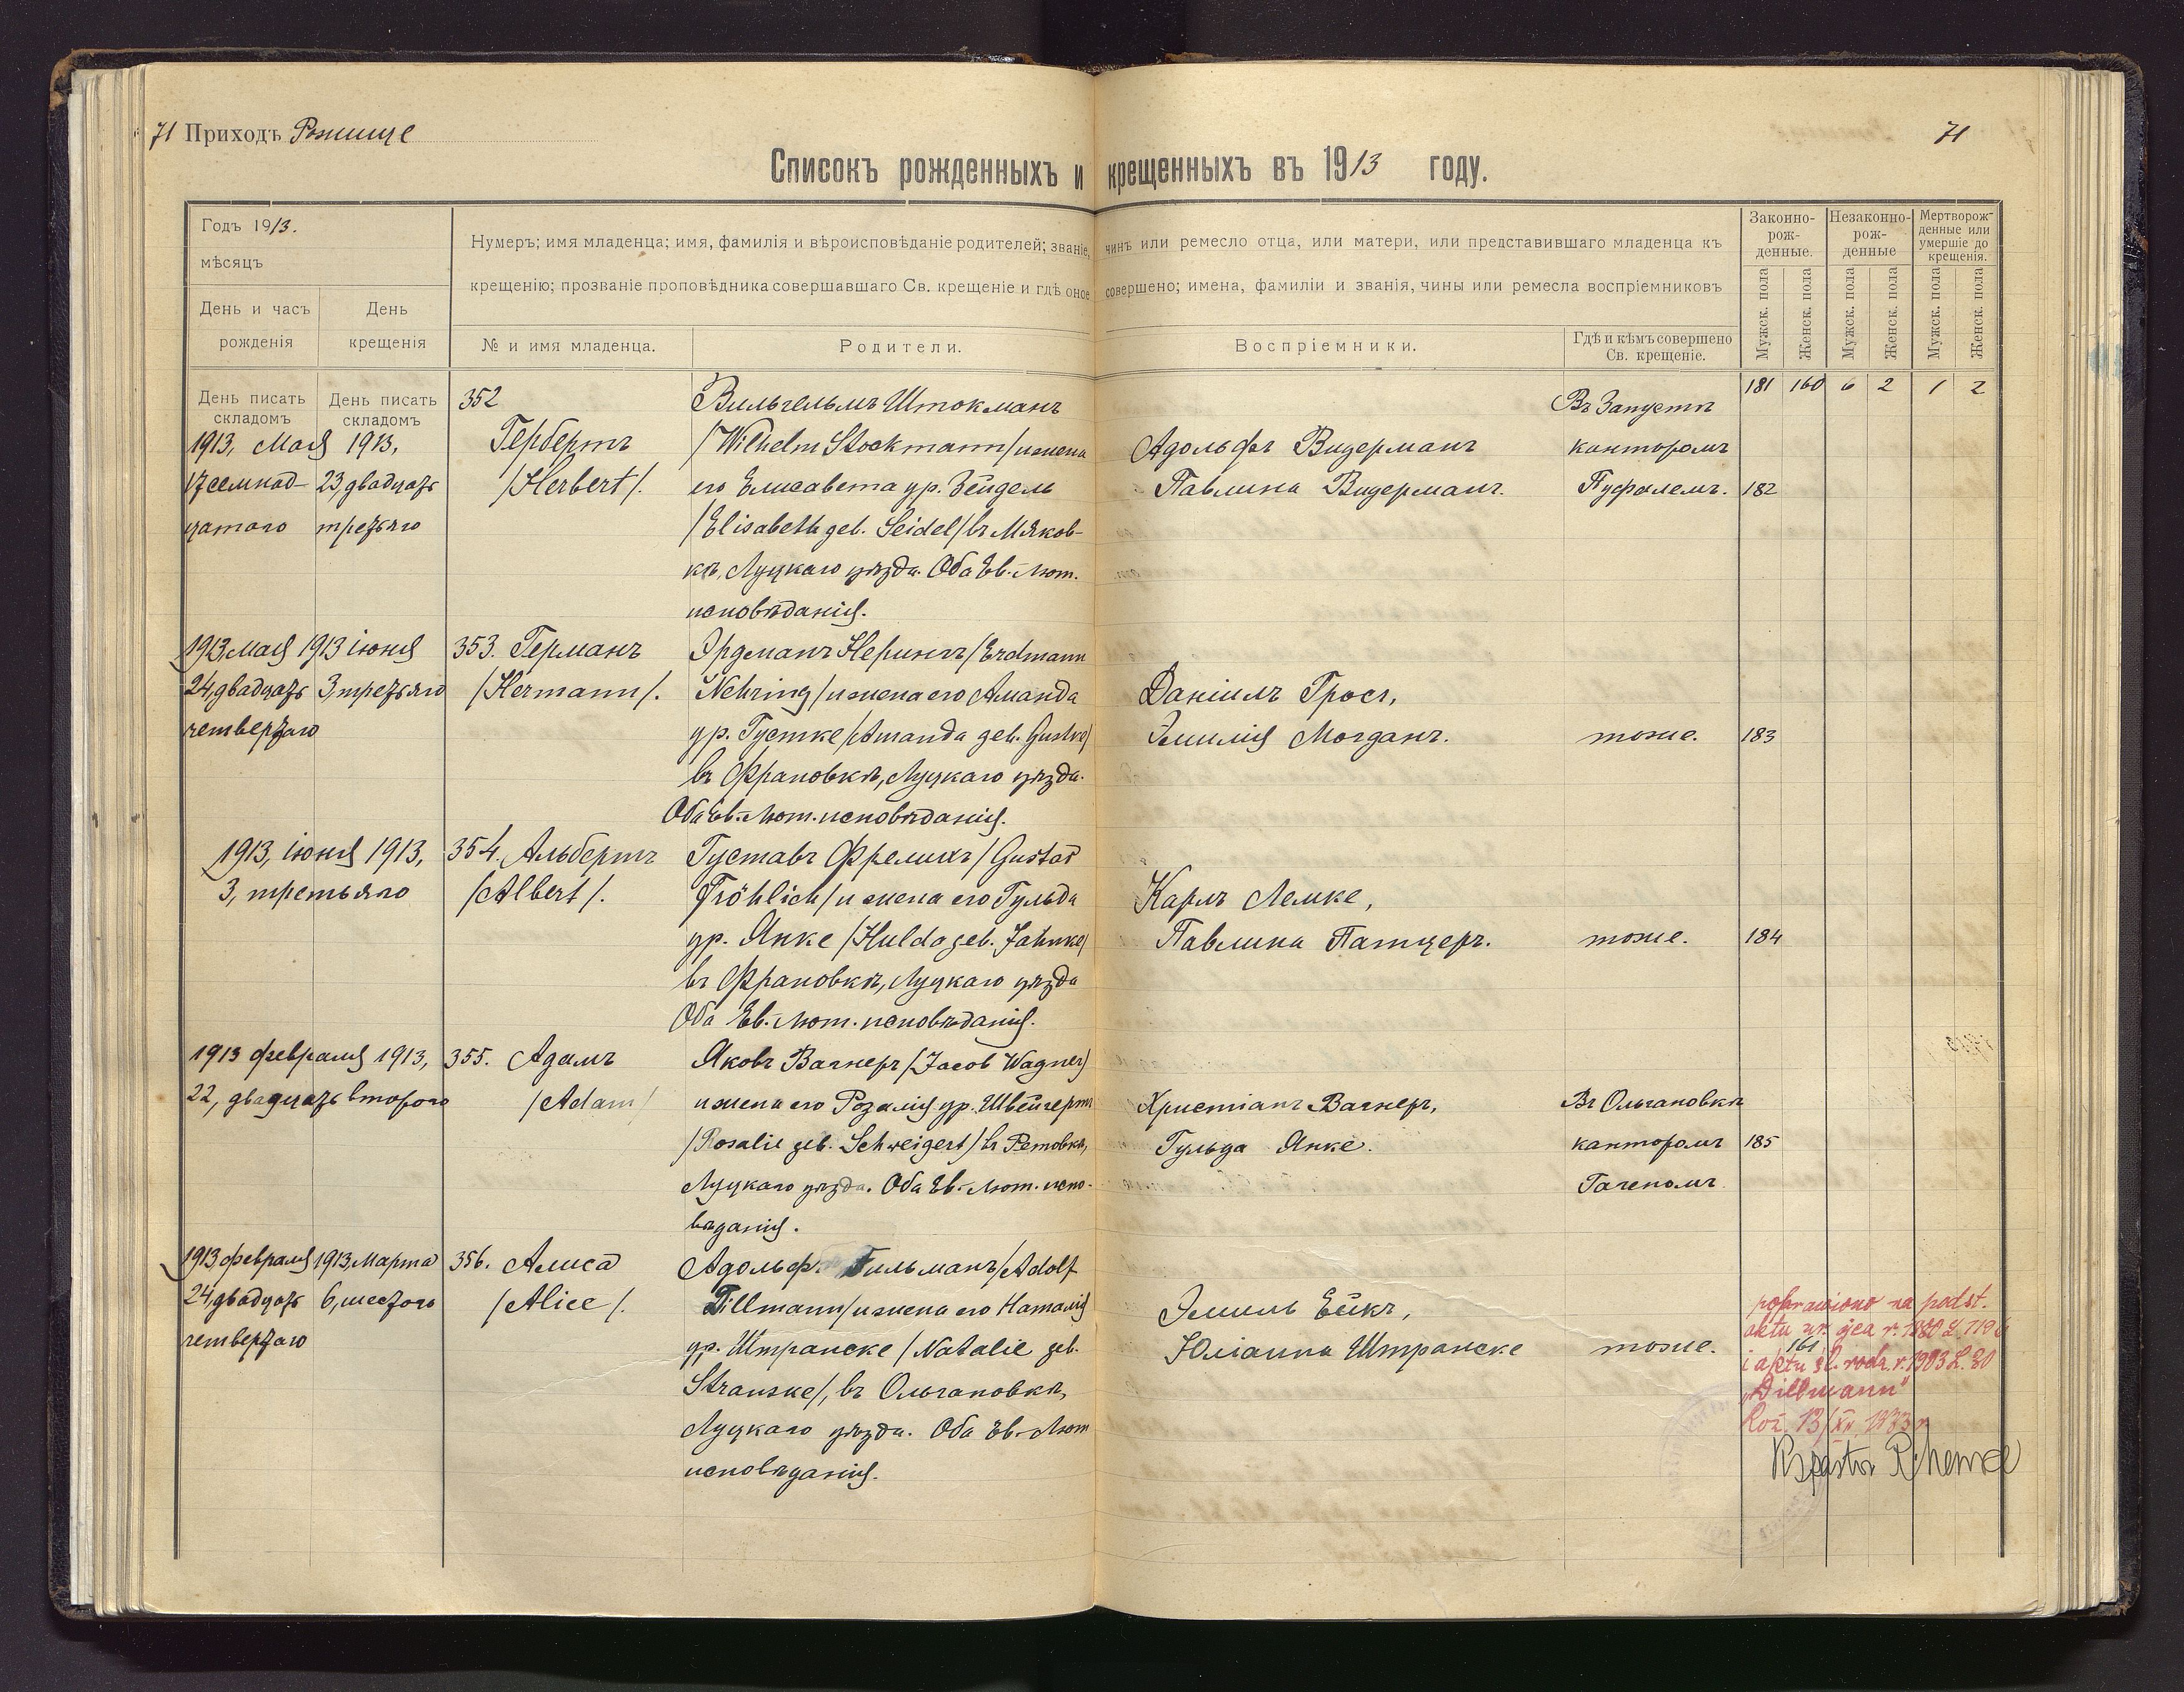 71 Приходъ Рожище
71
Списокъ рожденныхъ и крещенныхъ въ 1913 году.
Годъ 1913.
мѣсяцъ
День и часъ рожденія
День крещенія
Нумеръ; имя младенца; имя, фамилія и вѣроисповѣданіе родителей; званіе, чинъ или ремесло отца, или матери, или представившаго младенца къ
крещенію; прозваніе проповѣдника совершавшаго Св. крещеніе и гдѣ оное совершено; имена, фамиліи и званія, чины или ремесла воспріемниковъ
№ и имя младенца.
Родители.
Воспріемники.
Гдѣ и кѣмъ совершено Св. крещеніе.
Законно-рож-денные.
Незаконно-рож-денные
Мертворож-денные или умершіе до крещенія.
Мужск. пола
Женск. пола
Мужск. пола
Женск. пола
Мужск. пола
Женск. пола
День писать складомъ
День писать складомъ
181 160 6 2 1 2
1913, Мая 1913,
17 семнад- 23, двадцать
цатаго третьяго
352
Гербертъ
/Herbert/.
Вильгельмъ Штокманъ
/Wilhelm Stockmann/ и жена
его Елисавета ур. Зейдель
/Elisabeth geb. Seidel/ въ Мяков-
кѣ, Луцкаго уѣзда. Оба Ев.-Лют.
исповѣданія.
Адольфъ Видерманъ
Павлина Видерманъ.
Въ Запустѣ
канторомъ
Пуфалемъ.
182
1913, мая 1913 іюня
24, двадцать 3, третьяго
четвертаго
353. Германъ
/Hermann/.
Эрдманъ Нерингъ /Erdmann
Nehring/ и жена его Аманда
ур. Густке /Amanda geb. Gustke/
въ Франовкѣ, Луцкаго уѣзда.
Оба Ев.-Лют. исповѣданія.
Даніилъ Гросъ,
Эмилія Могданъ.
тоже.
183
1913, іюня 1913,
3, третьяго
354. Альбертъ
/Albert/.
Густавъ Фрелихъ /Gustav
Fröhlich/ и жена его Гульда
ур. Янке /Hulda geb. Jahnke/
въ Франовкѣ, Луцкаго уѣзда
Оба Ев.-Лют. исповѣданія.
Карлъ Лемке,
Павлина Патцеръ.
тоже.
184
1913 февраля 1913,
22, двадцать второго
355. Адамъ
/Adam/
Яковъ Вагнеръ /Jacob Wagner/
и жена его Розалія ур. Швейгертъ
/Rosalie geb. Schweigert/ въ Ретовкѣ,
Луцкаго уѣзда. Оба Ев.-Лют. испо-
вѣданія.
Христіанъ Вагнеръ,
Гульда Янке.
Въ Ольгановкѣ
канторомъ
185
1913 февраля 1913, Марта
24, двадцать 6, шестого
четвертаго
356. Алиса
/Alice/.
Адольфъ Тильманъ /Adolf
Dillmann/ и жена его Наталія
ур. Штранске /Natalie geb.
Stranske/, въ Ольгановкѣ,
Луцкаго уѣзда. Оба Ев.-Лют
исповѣданія.
Эмиль Ейкъ,
Юліанна Штранске
тоже.
161
poprawiono na podst.
aktu ur. ojca r. 1880
i aktu śl. rodz. r. 1903 L. 30
„Dillmann"